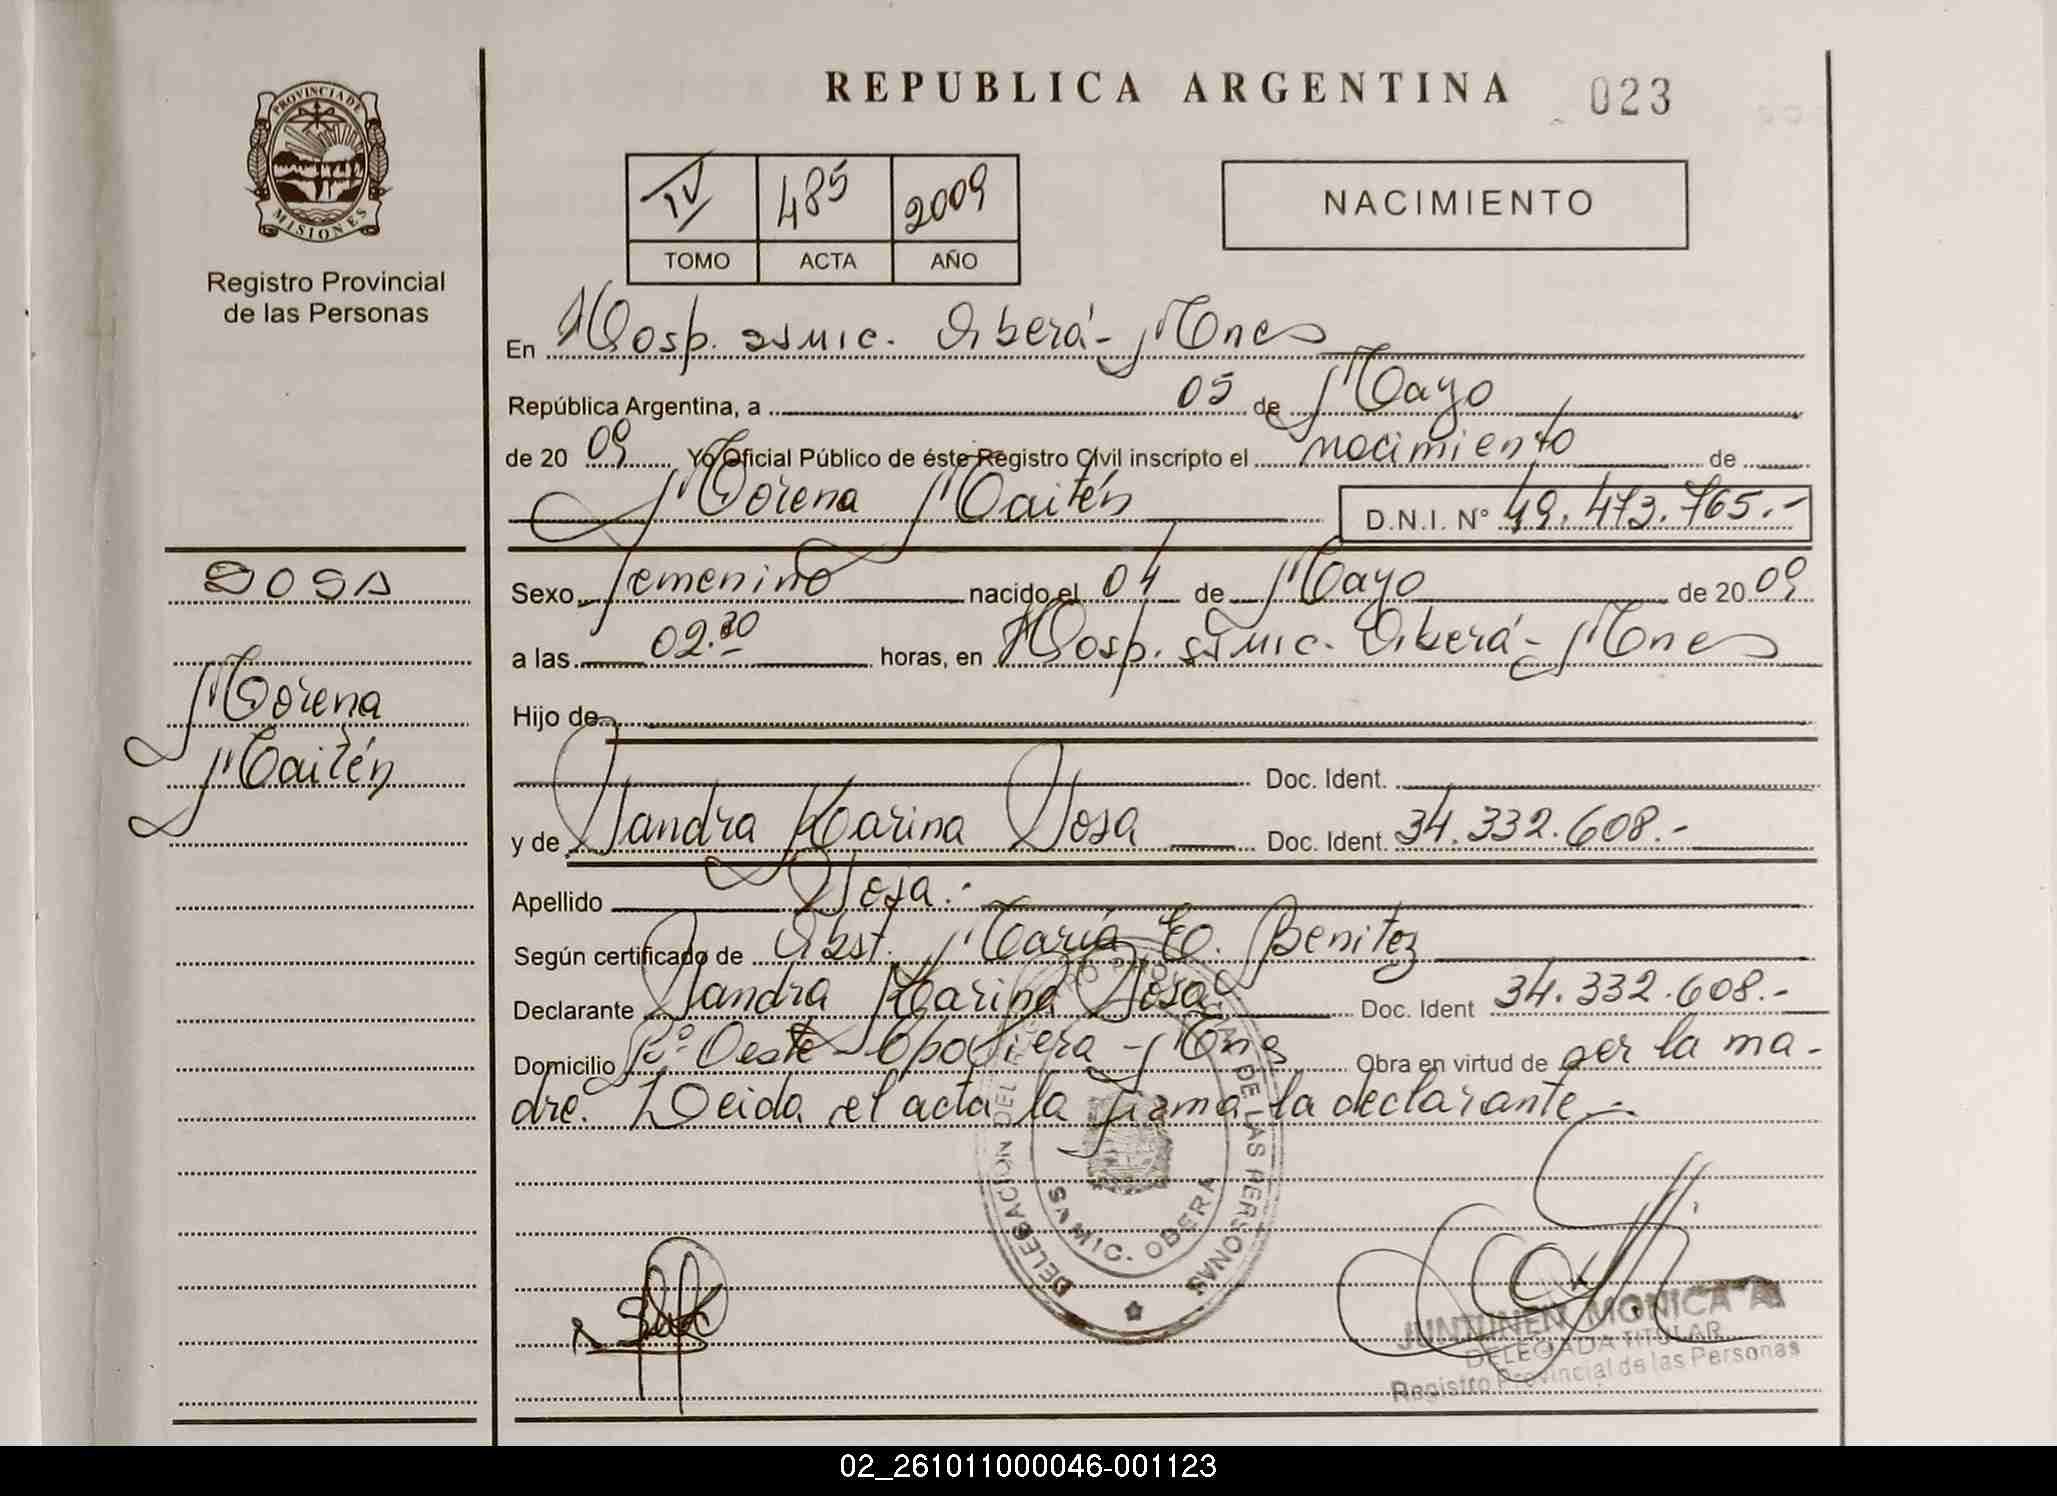 REPUBLICA ARGENTINA 023
PROVINCIA DE
MISIONES
Registro Provincial
de las Personas
IV 485 2009
TOMO ACTA AÑO
NACIMIENTO
En Hosp. SAMIC. Oberá- Mnes
República Argentina, a 05 de Mayo
de 20 09 Yo Oficial Público de éste Registro Civil inscripto el nacimiento de
Morena Maitén D.N.I. N° 49.473.765.-
SOSA
Morena
Maitén
Sexo femenino nacido el 04 de Mayo de 20 09
a las 02.30 horas, en Hosp. SAMIC. Oberá- Mnes
Hijo de
Doc. Ident.
y de Sandra Karina Sosa Doc. Ident. 34.332.608.-
Apellido Sosa.-
Según certificado de Obst. María E. Benitez
Declarante Sandra Karina Sosa Doc. Ident 34.332.608.-
Domicilio Bº Oeste - Mnes Obra en virtud de ser la ma-
dre. Leida el acta la firma la declarante.-
DELEGACION DEL DE LAS PERSONAS
SAMIC. OBERA
JUNTUNEN MONICA A.
DELEGADA TITULAR
Registro Provincial de las Personas
02_261011000046-001123